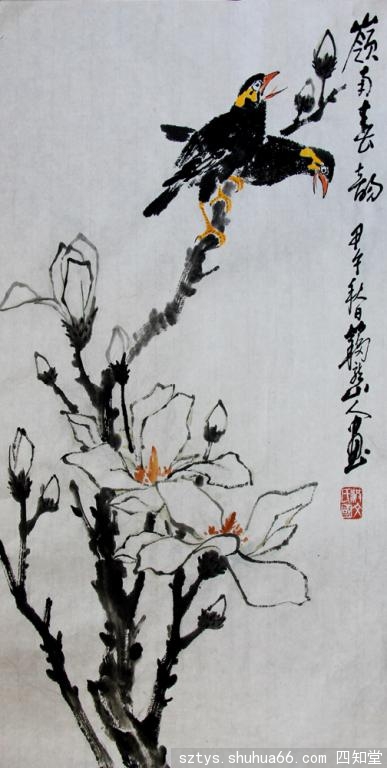 嶺南春韵
甲午秋日 山人畫
sztys.shuhua66.com 四知堂